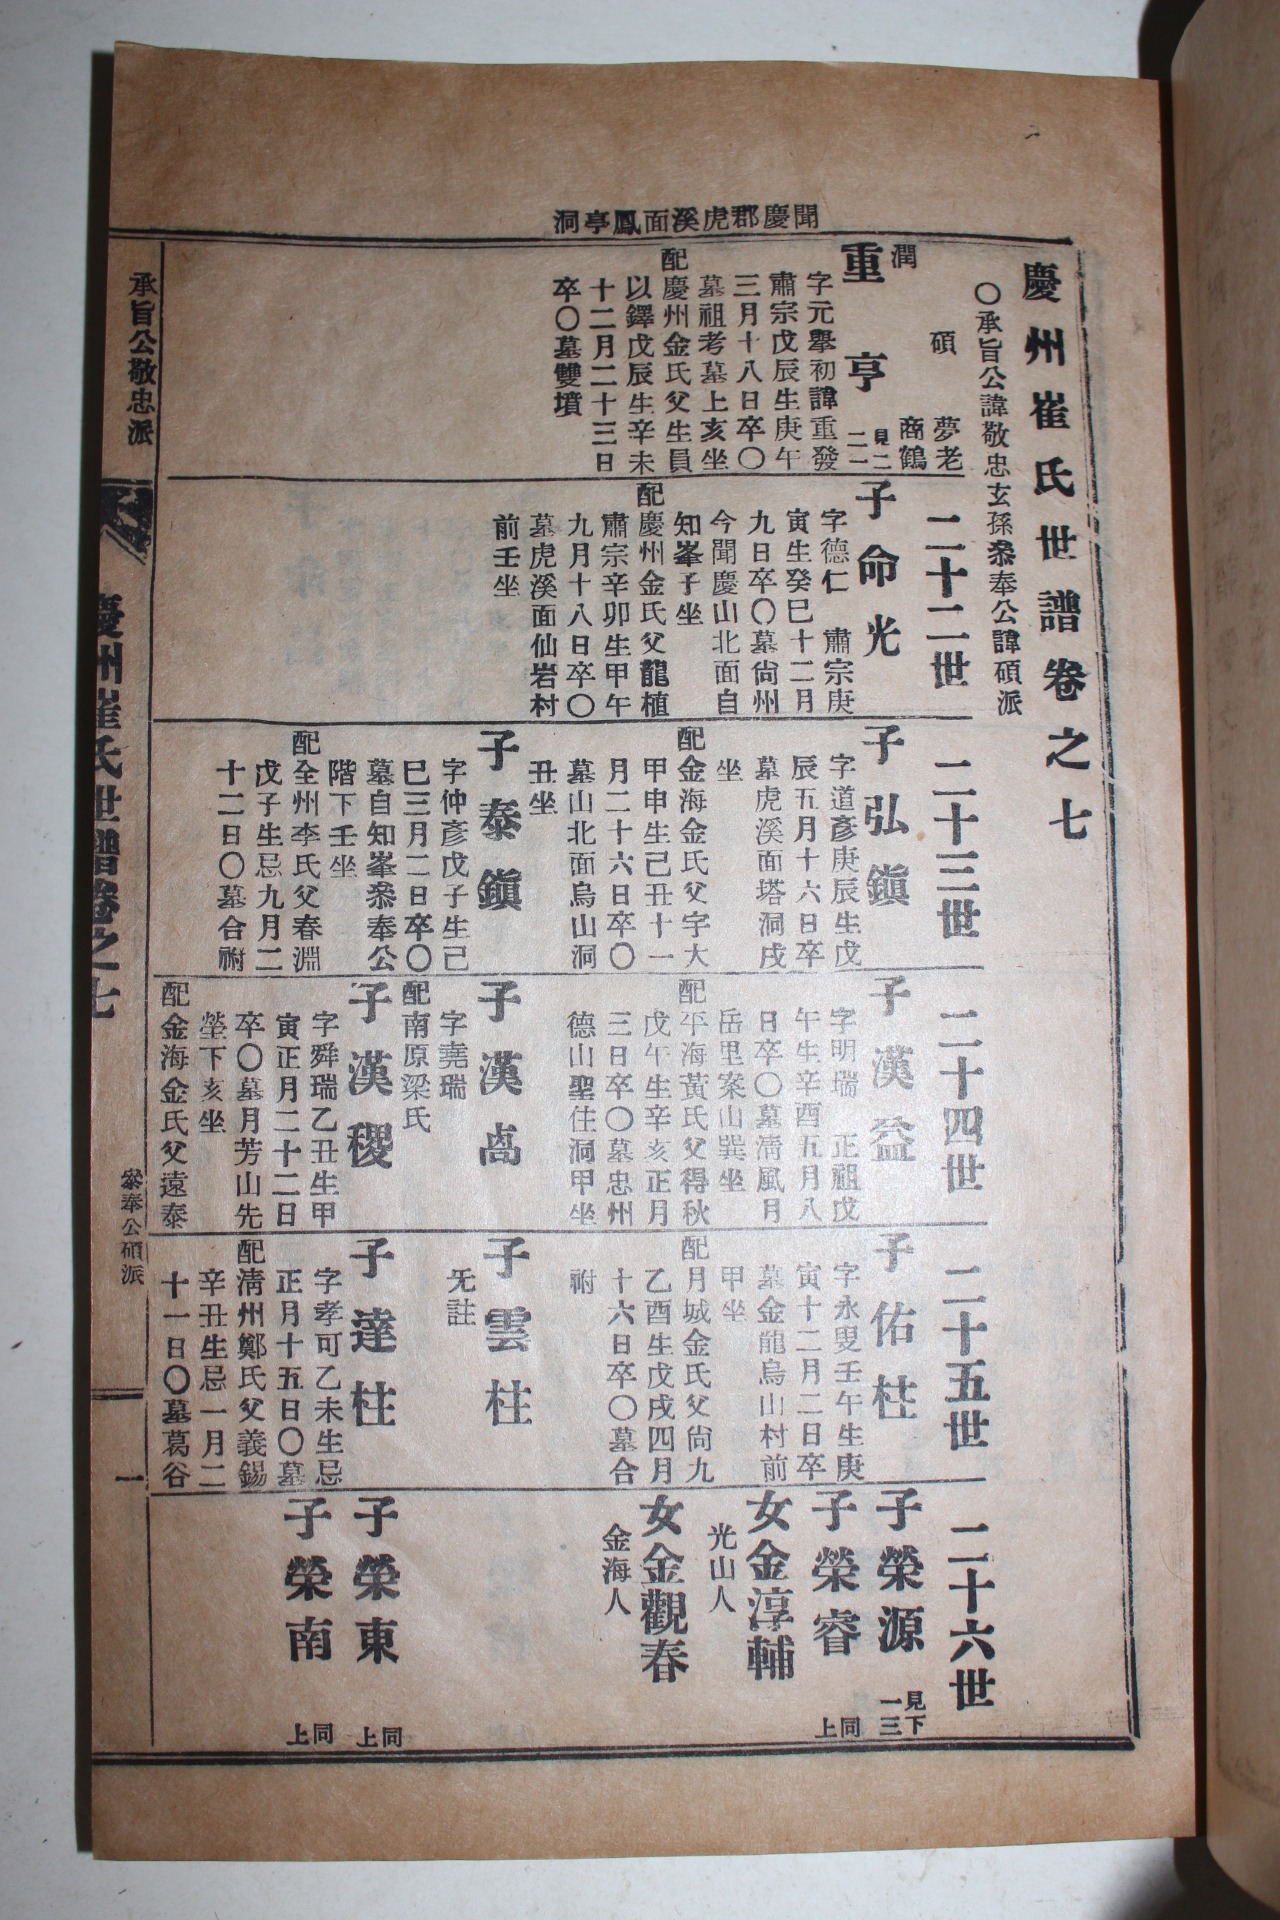 聞慶郡虎溪面鳳亭洞
慶州崔氏世譜卷之七
〇承旨公諱敬忠玄孫叅奉公諱碩派
碩
夢老
潤
商鶴
重亨
見二
二一
字元擧初諱重發
肅宗戊辰生庚午
三月十八日卒〇
墓祖考墓上亥坐
配慶州金氏父生員
以鐸戊辰生辛未
十二月二十三日
卒〇墓雙墳
二十二世
子命光
字德仁 肅宗庚
寅生癸巳十二月
九日卒〇墓尙州
今聞慶山北面自
知峯子坐
配慶州金氏父龍植
肅宗辛卯生甲午
九月十八日卒〇
墓虎溪面仙岩村
前壬坐
二十三世
子弘鎭
字道彥庚辰生戊
辰五月十六日卒
墓虎溪面塔洞戌
坐
配金海金氏父字大
甲申生己丑十一
月二十六日卒〇
墓山北面烏山洞
丑坐
子泰鎭
字仲彥戊子生己
巳三月二日卒〇
墓自知峯叅奉公
階下壬坐
配全州李氏父春淵
戊子生忌九月二
十二日〇墓合祔
二十四世
子漢益
字明瑞 正祖戊
午生辛酉五月八
日卒〇墓淸風月
岳里案山巽坐
配平海黃氏父得秋
戊午生辛亥正月
三日卒〇墓忠州
德山聖住洞甲坐
子漢卨
字堯瑞
配南原梁氏
子漢稷
字舜瑞乙丑生甲
寅正月二十二日
卒〇墓月芳山先
塋下亥坐
配金海金氏父遠泰
二十五世
子佑柱
字永叟壬午生庚
寅十二月二日卒
墓金龍烏山村前
甲坐
配月城金氏父尙九
乙酉生戊戌四月
十六日卒〇墓合
祔
子雲柱
旡註
子達柱
字孝可乙未生忌
正月十五日〇墓
配淸州鄭氏父義錫
辛丑生忌一月二
十一日〇墓葛谷
二十六世
子榮源
見下
一三
子榮睿
同上
女金淳輔
光山人
女金觀春
金海人
子榮東
同上
子榮南
同上
承旨公敬忠派
慶州崔氏世譜卷之七
叅奉公碩派
一